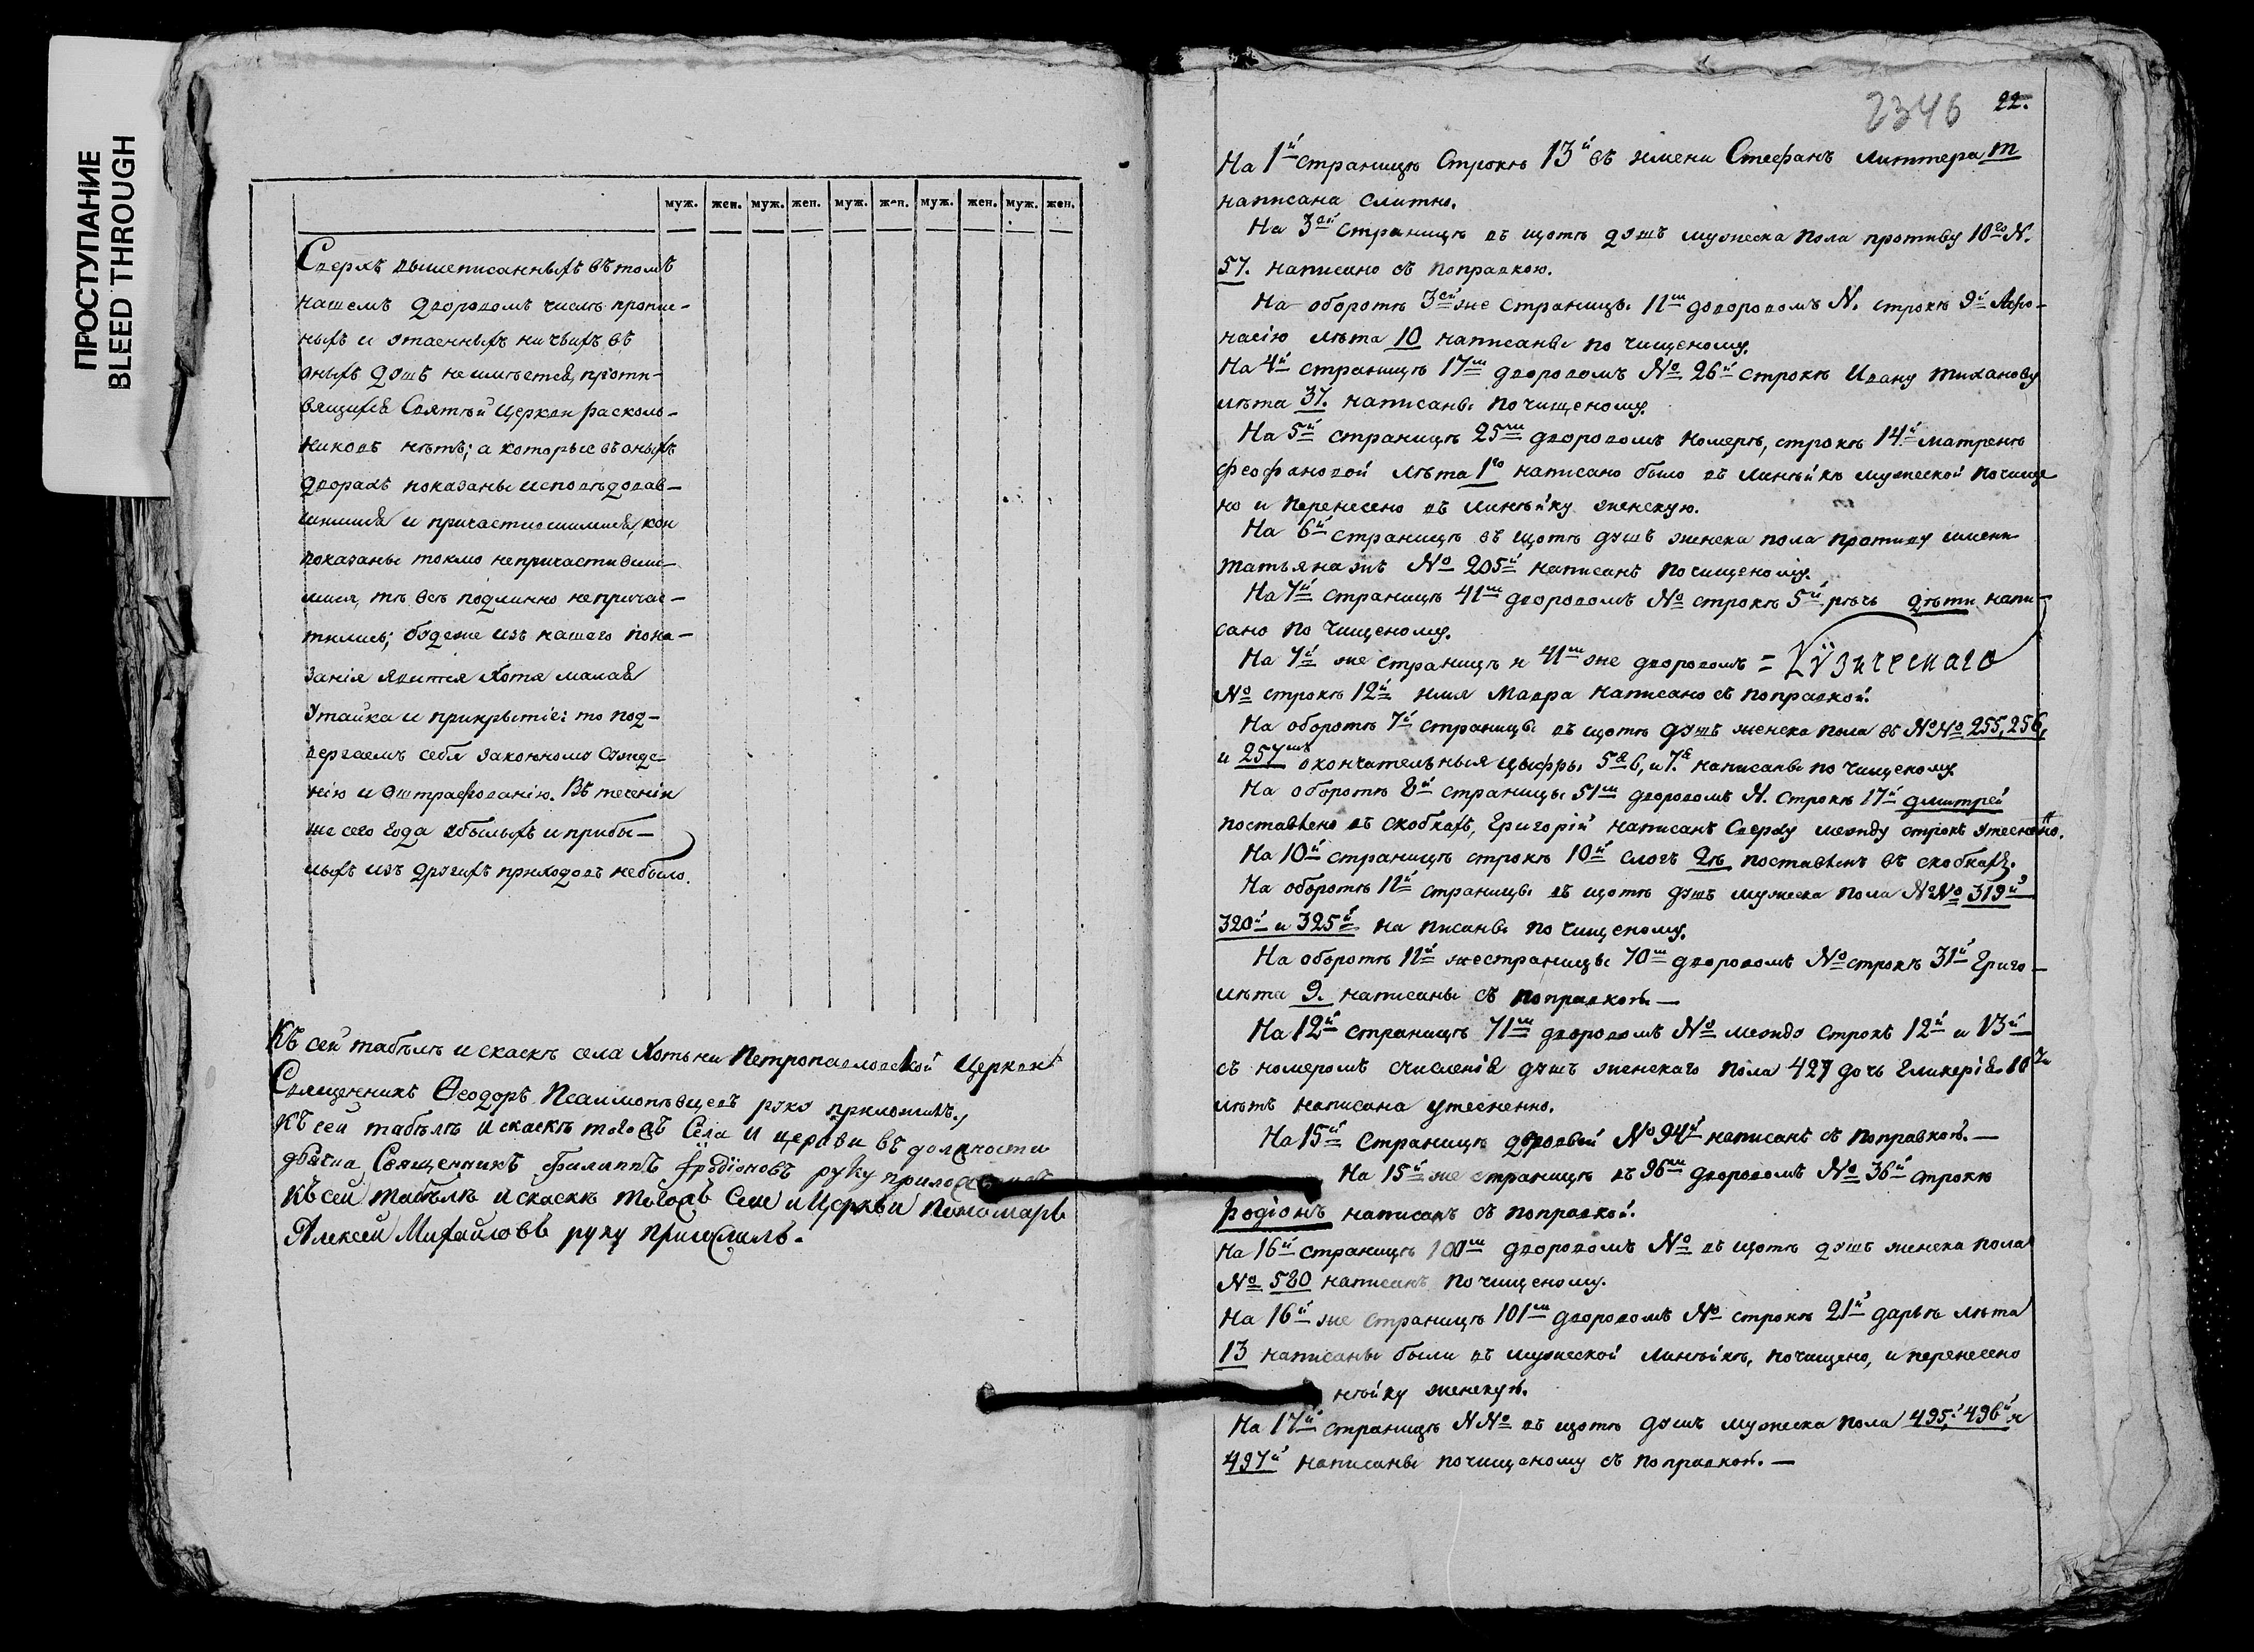 ПРОСТУПАНИЕ
BLEED THROUGH
муж. жен. муж. жен. муж. жен. муж. жен. муж. жен.
Сверхъ вышеписанныхъ въ томъ
нашемъ дворовомъ числѣ пропис-
ныхъ и утаенныхъ ничьихъ въ
оныхъ душъ неимѣется, проти-
вящихся Святѣй Церкви расколь-
никовъ нѣтъ; а которые въ оныхъ
дворахъ показаны исповѣдовав-
шимися и причастившимися, кои
показаны токмо непричастивши-
мися, тѣ всѣ подлинно непричас-
тились; буде же изъ нашего пока-
занія явится хотя малая
утайка и прикрытіе: то под-
вергаемъ себя законному сужде-
нію и оштрафованію. Въ теченіи
же сего года убылыхъ и прибы-
лыхъ изъ другихъ приходовъ небыло.
Къ сей табѣлѣ и скаскѣ села Хотыни Петропавловской Церкви
Священникъ Ѳеодоръ Псалмопѣвцевъ руку приложилъ,
Къ сей табѣлѣ и скаскѣ тогожъ Села и церкви въ должности
дьячка Священникъ Филиппъ Иродіоновъ руку приложилъ
Къ сей табѣлѣ и скаскѣ тогожъ Села и Церкви Пономарь
Алексей Михайловъ руку приложилъ.
2346 22.
На 1й страницѣ Строкѣ 13й въ имени Стефанъ литтера т
написана слитно.
На 3ей страницѣ въ щотѣ душъ мужеска пола противу 10го N.
57. написано съ поправкою.
На оборотѣ 3ей же страницы 11мъ дворовомъ N. строкѣ 9й Афо-
насію лѣта 10 написаны по чищеному.
На 4й страницѣ 17мъ дворовомъ No 26й строкѣ Ивану Тиханову
лѣта 37. написаны по чищеному.
На 5й страницѣ 25мъ дворовомъ номерѣ, строкѣ 14й матренѣ
феофановой лѣта 1го написано было въ линѣйкѣ мужеской почище
но и перенесено въ линѣйку женскую.
На 6й страницѣ въ щотѣ душъ женска пола противу имени
татьянажъ No 205й написанъ по чищеному.
На 7й страницѣ 41мъ дворовомъ No строкѣ 5й рѣчь дѣти напи-
сано по чищеному.
На 7й же страницѣ и 41мъ же дворовомъ =
No строкѣ 12й имя Мавра написано съ поправкой.
На оборотѣ 7й страницы въ щотѣ душъ женска пола въ NoNo 255, 256,
и 257мъ окончательныя цыфры 5я 6, и 7.я написаны по чищеному
На оборотѣ 8й страницы 51мъ дворовомъ N. строкѣ 17й дмитрей
поставлено въ скобкахъ, Григорій написанъ Сверху между строкъ утесненно.
На 10й страницѣ строкѣ 10й слогъ поставленъ въ скобкахъ.
На оборотѣ 11й страницы въ щотѣ душъ мужеска пола NoNo 319й
320й и 325й на писаны по чищеному.
На оборотѣ 11й же страницы 70мъ дворовомъ No строкѣ 31й Григо-
лѣта 9. написаны съ поправкой. —
На 12й страницѣ 71мъ дворовомъ No между строкъ 12й и 13й
съ номеромъ счисленія душъ женскаго пола 427 дочь Гликерія 10ти
лѣтъ написана утесненно.
На 15й Страницѣ дворовый No 94й написанъ съ поправкой. —
На 15й же страницѣ въ 96мъ дворовомъ No 36й строкѣ
родіонъ написанъ съ поправкой.
На 16й страницѣ 100мъ дворовомъ No въ щотѣ душъ женска пола
No 520 написанъ по чищеному.
На 16й же страницѣ 101мъ дворовомъ No строкѣ 21й дарьѣ лѣта
13 написаны были въ мужеской линѣйкѣ, почищено, и перенесено
нѣйку женскую.
На 17й страницѣ NNo въ щотѣ душъ мужеска пола 495,й 496й и
497й написаны по чищеному съ поправкой. —